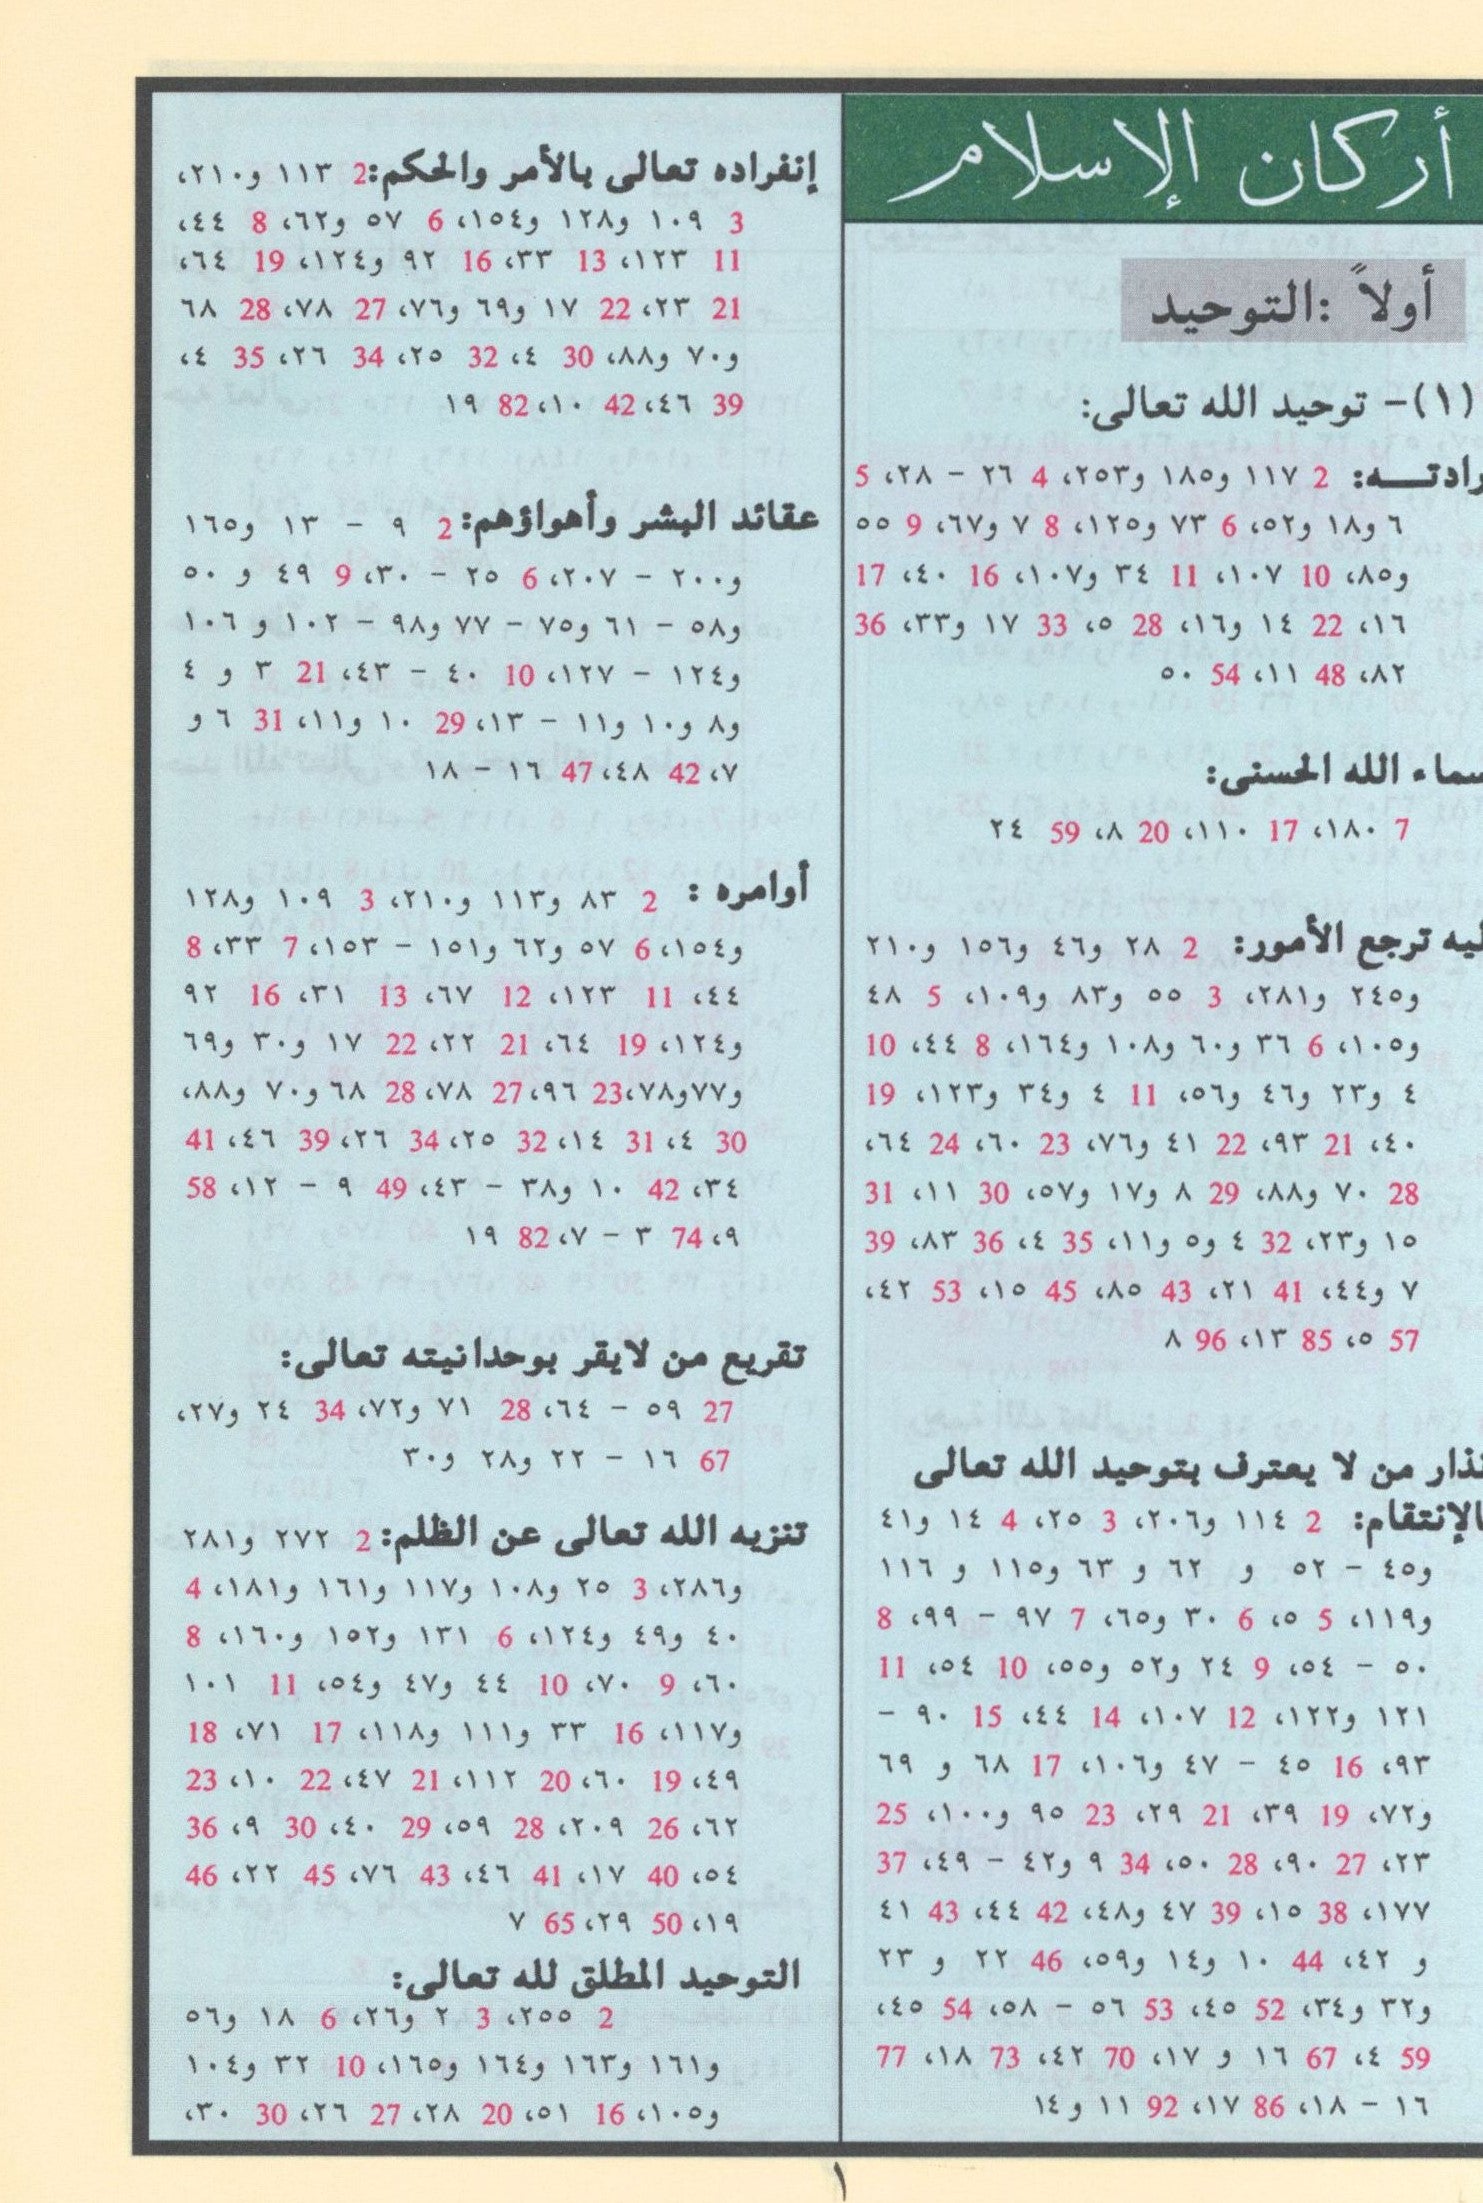 أركان الإسلام
أولاً :التوحيد
(١)- توحيد الله تعالى:
رادتـــه: 2 ١١٧ و١٨٥ و٢٥٣، 4 ٢٦ - ٢٨، 5
٦ و١٨ و٥٢، 6 ٧٣ و١٢٥، 8 ٧ و٦٧، 9 ٥٥
و٨٥، 10 ١٠٧، 11 ٣٤ و١٠٧، 16 ٤٠، 17
١٦، 22 ١٤ و١٦، 28 ٥، 33 ١٧ و٣٣، 36
٨٢، 48 ١١، 54 ٥٠
سماء الله الحسنى:
7 ١٨٠، 17 ١١٠، 20 ٨، 59 ٢٤
ليه ترجع الأمور: 2 ٢٨ و٤٦ و١٥٦ و٢١٠
و٢٤٥ و٢٨١، 3 ٥٥ و٨٣ و١٠٩، 5 ٤٨
و١٠٥، 6 ٣٦ و٦٠ و١٠٨ و١٦٤، 8 ٤٤، 10
٤ و٢٣ و٤٦ و٥٦، 11 ٤ و٣٤ و١٢٣، 19
٤٠، 21 ٩٣، 22 ٤١ و٧٦، 23 ٦٠، 24 ٦٤،
28 ٧٠ و٨٨، 29 ٨ و١٧ و٥٧، 30 ١١، 31
١٥ و٢٣، 32 ٤ و٥ و١١، 35 ٤، 36 ٨٣، 39
٧ و٤٤، 41 ٢١، 43 ٨٥، 45 ١٥، 53 ٤٢،
57 ٥، 85 ١٣، 96 ٨
نذار من لا يعترف بتوحيد الله تعالى
بالإنتقام: 2 ١١٤ و٢٠٦، 3 ٢٥، 4 ١٤ و٤١
و٤٥ - ٥٢ و ٦٢ و ٦٣ و١١٥ و ١١٦
و١١٩، 5 ٥، 6 ٣٠ و٦٥، 7 ٩٧ - ٩٩، 8
٥٠ - ٥٤، 9 ٢٤ و٥٢ و٥٥، 10 ٥٤، 11
١٢١ و١٢٢، 12 ١٠٧، 14 ٤٤، 15 ٩٠ -
٩٣، 16 ٤٥ - ٤٧ و١٠٦، 17 ٦٨ و ٦٩
و٧٢، 19 ٣٩، 21 ٢٩، 23 ٩٥ و١٠٠، 25
٢٣، 27 ٩٠، 28 ٥٠، 34 ٩ و٤٢ - ٤٩، 37
١٧٧، 38 ١٥، 39 ٤٧ و٤٨، 42 ٤٤، 43 ٤١
و ٤٢، 44 ١٠ و١٤ و٥٩، 46 ٢٢ و ٢٣
و٣٢ و٣٤، 52 ٤٥، 53 ٥٦ - ٥٨، 54 ٤٥،
59 ٤، 67 ١٦ و ١٧، 70 ٤٢، 73 ١٨، 77
١٦ - ١٨، 86 ١٧، 92 ١١ و١٤
إنفراده تعالى بالأمر والحكم:2 ١١٣ و٢١٠،
3 ١٠٩ و١٢٨ و١٥٤، 6 ٥٧ و٦٢، 8 ٤٤،
11 ١٢٣، 13 ٣٣، 16 ٩٢ و١٢٤، 19 ٦٤،
21 ٢٣، 22 ١٧ و٦٩ و٧٦، 27 ٧٨، 28 ٦٨
و٧٠ و٨٨، 30 ٤، 32 ٢٥، 34 ٢٦، 35 ٤،
39 ٤٦، 42 ١٠، 82 ١٩
عقائد البشر وأهواؤهم:2 ٩ - ١٣ و١٦٥
و٢٠٠ - ٢٠٧، 6 ٢٥ - ٣٠، 9 ٤٩ و ٥٠
و٥٨ - ٦١ و٧٥ - ٧٧ و٩٨ - ١٠٢ و ١٠٦
و١٢٤ - ١٢٧، 10 ٤٠ - ٤٣، 21 ٣ و ٤
و٨ و١٠ و١١ - ١٣، 29 ١٠ و١١، 31 ٦ و
٧، 42 ٤٨، 47 ١٦ - ١٨
أوامره : 2 ٨٣ و١١٣ و٢١٠، 3 ١٠٩ و١٢٨
و١٥٤، 6 ٥٧ و٦٢ و١٥١ - ١٥٣، 7 ٣٣، 8
٤٤، 11 ١٢٣، 12 ٦٧، 13 ٣١، 16 ٩٢
و١٢٤، 19 ٦٤، 21 ٢٢، 22 ١٧ و٣٠ و٦٩
و٧٧و٧٨، 23 ٩٦، 27 ٧٨، 28 ٦٨ و٧٠ و٨٨،
30 ٤، 31 ١٤، 32 ٢٥، 34 ٢٦، 39 ٤٦، 41
٣٤، 42 ١٠ و٣٨ - ٤٣، 49 ٩ - ١٢، 58
٩، 74 ٣ - ٧، 82 ١٩
تقريع من لايقر بوحدانيته تعالى:
27 ٥٩ - ٦٤، 28 ٧١ و٧٢، 34 ٢٤ و٢٧،
67 ١٦ - ٢٢ و٢٨ و٣٠
تنزيه الله تعالى عن الظلم:2 ٢٧٢ و٢٨١
و٢٨٦، 3 ٢٥ و١٠٨ و١١٧ و١٦١ و١٨١، 4
٤٠ و٤٩ و١٢٤، 6 ١٣١ و١٥٢ و١٦٠، 8
٦٠، 9 ٧٠، 10 ٤٤ و٤٧ و٥٤، 11 ١٠١
و١١٧، 16 ٣٣ و١١١ و١١٨، 17 ٧١، 18
٤٩، 19 ٦٠، 20 ١١٢، 21 ٤٧، 22 ١٠، 23
٦٢، 26 ٢٠٩، 28 ٥٩، 29 ٤٠، 30 ٩، 36
٥٤، 40 ١٧، 41 ٤٦، 43 ٧٦، 45 ٢٢، 46
١٩، 50 ٢٩، 65 ٧
التوحيد المطلق لله تعالى:
2 ٢٥٥، 3 ٢ و٢٦، 6 ١٨ و٥٦
و١٦١ و١٦٣ و١٦٤ و١٦٥، 10 ٣٢ و١٠٤
و١٠٥، 16 ٥١، 20 ٢٨، 27 ٢٦، 30 ٣٠،
١